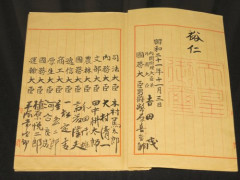 裕仁
昭和二十一年十一月三日
内閣總理大臣兼
外務大臣 吉田茂
國務大臣 男爵幣原喜重郎
司法大臣 木村篤太郎
内務大臣 大村清一
文部大臣 田中耕太郎
農林大臣
國務大臣
遞信大臣 一松定吉
商工大臣
厚生大臣 河合良成
國務大臣 植原悦二郎
運輸大臣 平塚常次郎